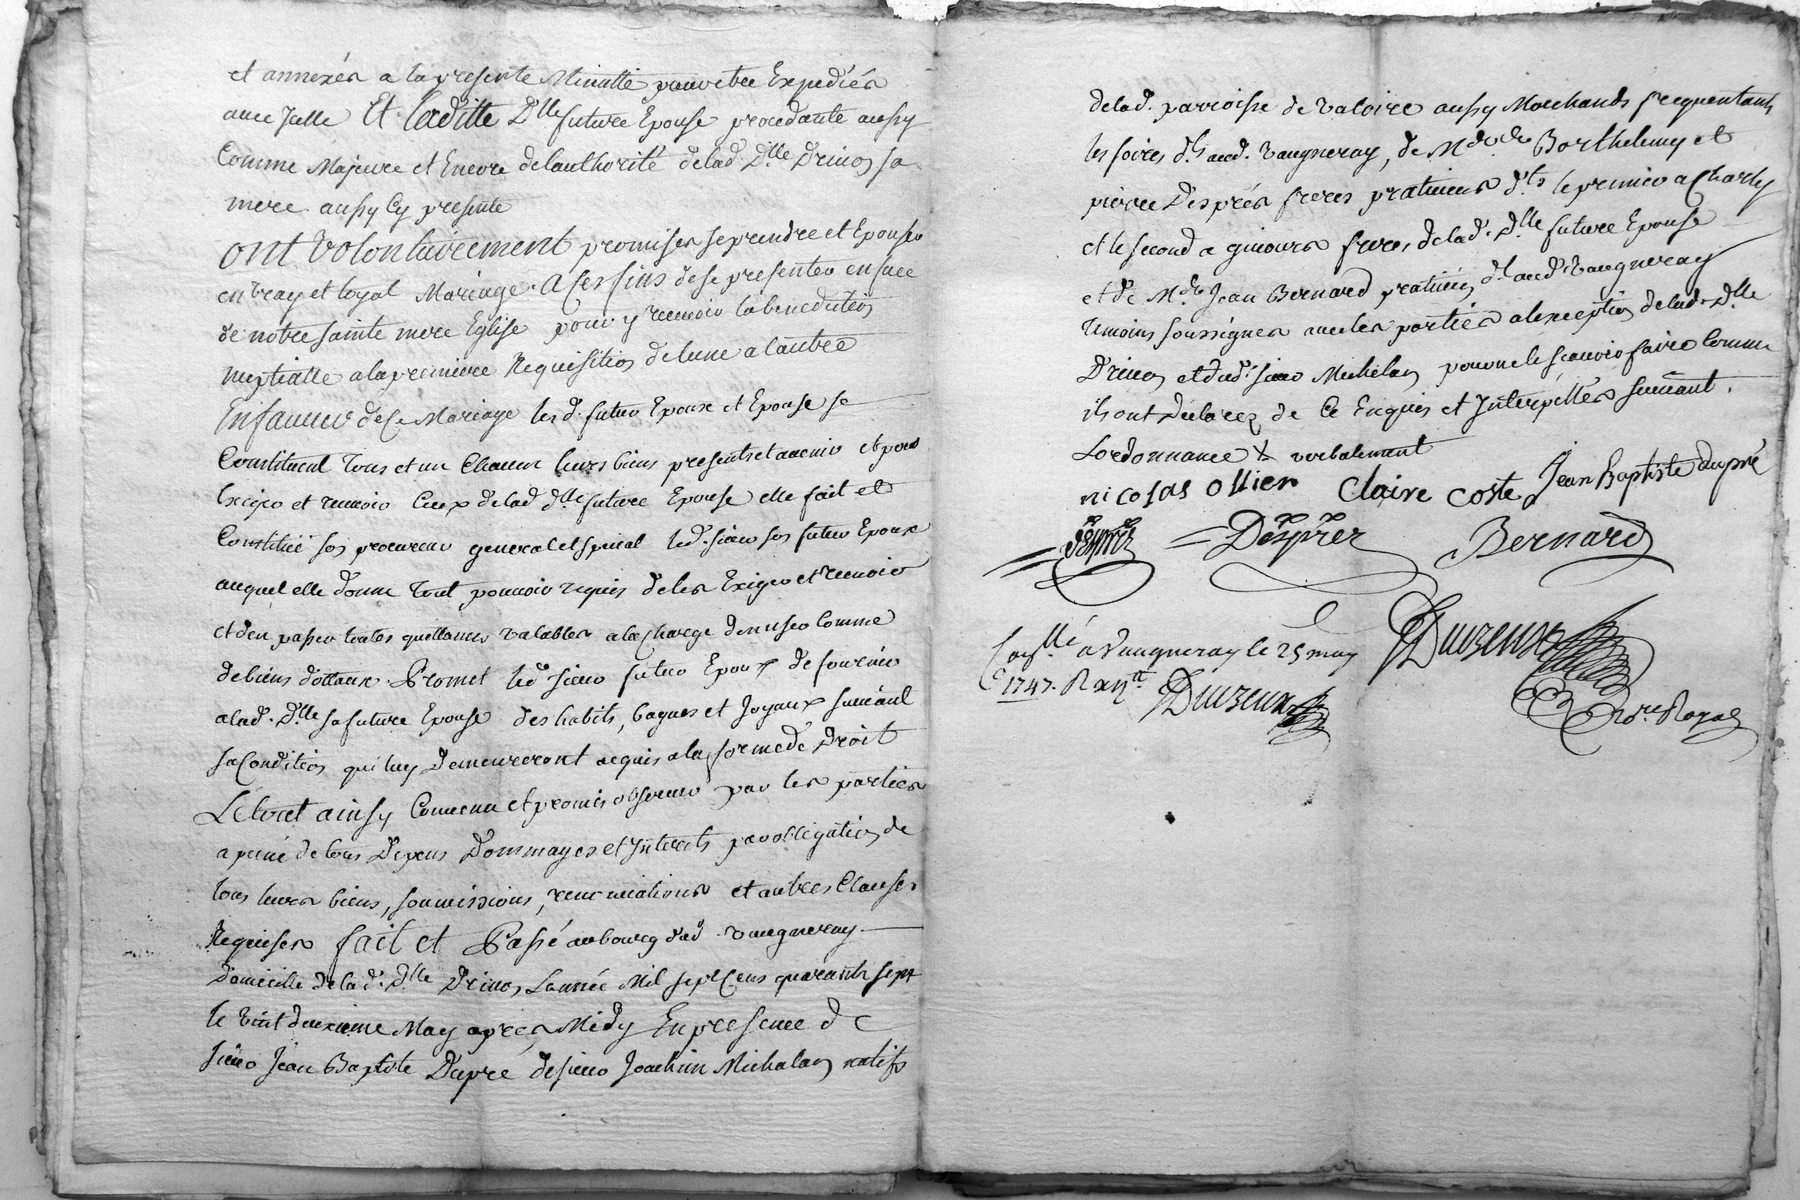 et annexés a la presente Minutte pour etre Expediés
avec Icelle Et laditte Dlle future Epouse procedante aussy
Comme Majeure et Encore de lauthorité de lad. Dlle Drinos sa
mere aussy Cy presente
ont volontairement promis se prendre et Epouser
en vray et loyal Mariage. A Ces fins de se presenter en face
de notre sainte mere Eglise pour y recevoir la benediction
nuptialle a la premiere Requisition de lune a lautre
En faveur de Ce Mariage les d. futurs Epoux et Epouse se
Constituent tous et un Chacun leurs biens presents et avenir et pour
Exiger et recevoir Ceux de lad dlle future Epouse elle fait et
Constitue son procureur general et special led. sieur son futur Epoux
auquel elle donne tout pouvoir requis de les Exiger et recevoir
et den passer toutes quittances valables a la Charge den user Comme
de biens dottaux. Promet led sieur futur Epoux de fournir
a lad. Dlle sa future Epouse des habits, bagues et Joyaux suivant
sa Condition qui luy Demeureront acquis a la forme de Droit
Le tout ainsy Convenu et promis observer par les parties
a peine de tous Depens Dommages et Interets par obligation de
tous leurs biens, soumissions, renonciations et autres Clauses
Requises fait et Passé au bourg dud. vaugneray
domicille de la d. Dlle Drinos, Lannée Mil sept Cens quarante sept
le vint deuxieme May après Midy En presence de
sieur Jean Baptiste Dupré de sieur Joachim Michalan natifs
de lad. parroisse de valoire aussy Marchands frequentants
les foires dt aud. vaugneray, de Barthelemy et
pierre Desprès freres praticiens dts le premier a Charly
et le second a freres de lad. Dlle future Epouse
et de Jean Bernard praticien dt aud. vaugneray
temoins soussignes avec les parties a lexception de lad. Dlle
Drinos et dud. sieur Michalan pour ne le scavoir faire Comme
ils ont declarez de Ce Enquis et Interpellés suivant
Lordonnance & verbalement
nicolas ollier Claire coste Jean Baptiste dupré
desprez Desprez Bernard
Duizeux
a Vaugneray le 25 may
1747. Duizeux
Royal